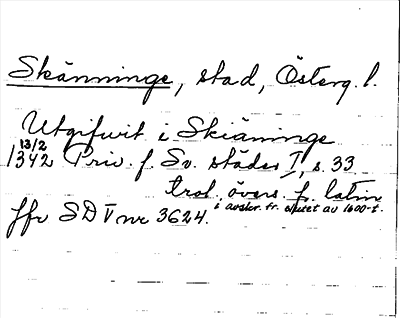 Skänninge, stad, Österg. l.
Utgifwit i Skiäninge
13/2
1342 Priv. f. Sv. städer I, s. 33
trol. övers. fr. latin
i avskr. fr. slutet av 1600-t.
Jfr SD V nr 3624.